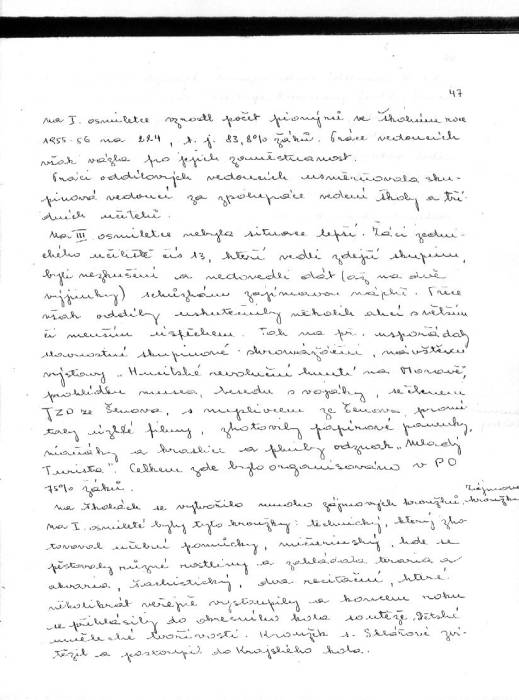 47
na I. osmiletce vzrostl počet pionýrů ve školním roce
1955-56 na 224, t. j. 83,8% žáků. Práce vedoucích
však vázla pro jejich zaměstnanost.
Práci oddílových vedoucích usměrňovala sku-
pinová vedoucí za spolupráce vedení školy a tří-
dních učitelů.
Na III osmiletce nebyla situace lepší. Žáci zední-
ckého učiliště čís 13, kteří vedli zdejší skupinu,
byli nezkušení a nedovedli dát (až na dvě
výjimky) schůzkám zajímavou náplň. Přece
však oddíly uskutečnily několik akcí s větším
či menším úspěchem. Tak na př. uspořádaly
slavnostní skupinové shromáždění, návštěvu
výstavy "Husitské revoluční hnutí na Moravě",
prohlídku musea, besedu s vojáky, se členem
JZD ze Šenova, s myslivcem ze Šenova, promí
taly úzké filmy, zhotovily papírové panenky,
maňásky a kraslice a plnily odznak "Mladý
Turista". Celkem zde bylo organisováno v PO
75% žáků.
Na školách se vytvořilo mnoho zájmových kroužků. Zájmové
kroužky
Na I. osmileté byly tyto kroužky: technický, který zho
tovoval učební pomůcky, mičurinský, kde se
pěstovaly různé rostliny a zakládala teraria a
akvaria, šachistický, dva recitační, které
několikrát veřejně vystoupily a koncem roku
se přihlásily do okresního kola soutěže dětské
umělecké tvořivosti. Kroužek s. Sklářové zví-
tězil a postoupil do Krajského kola.